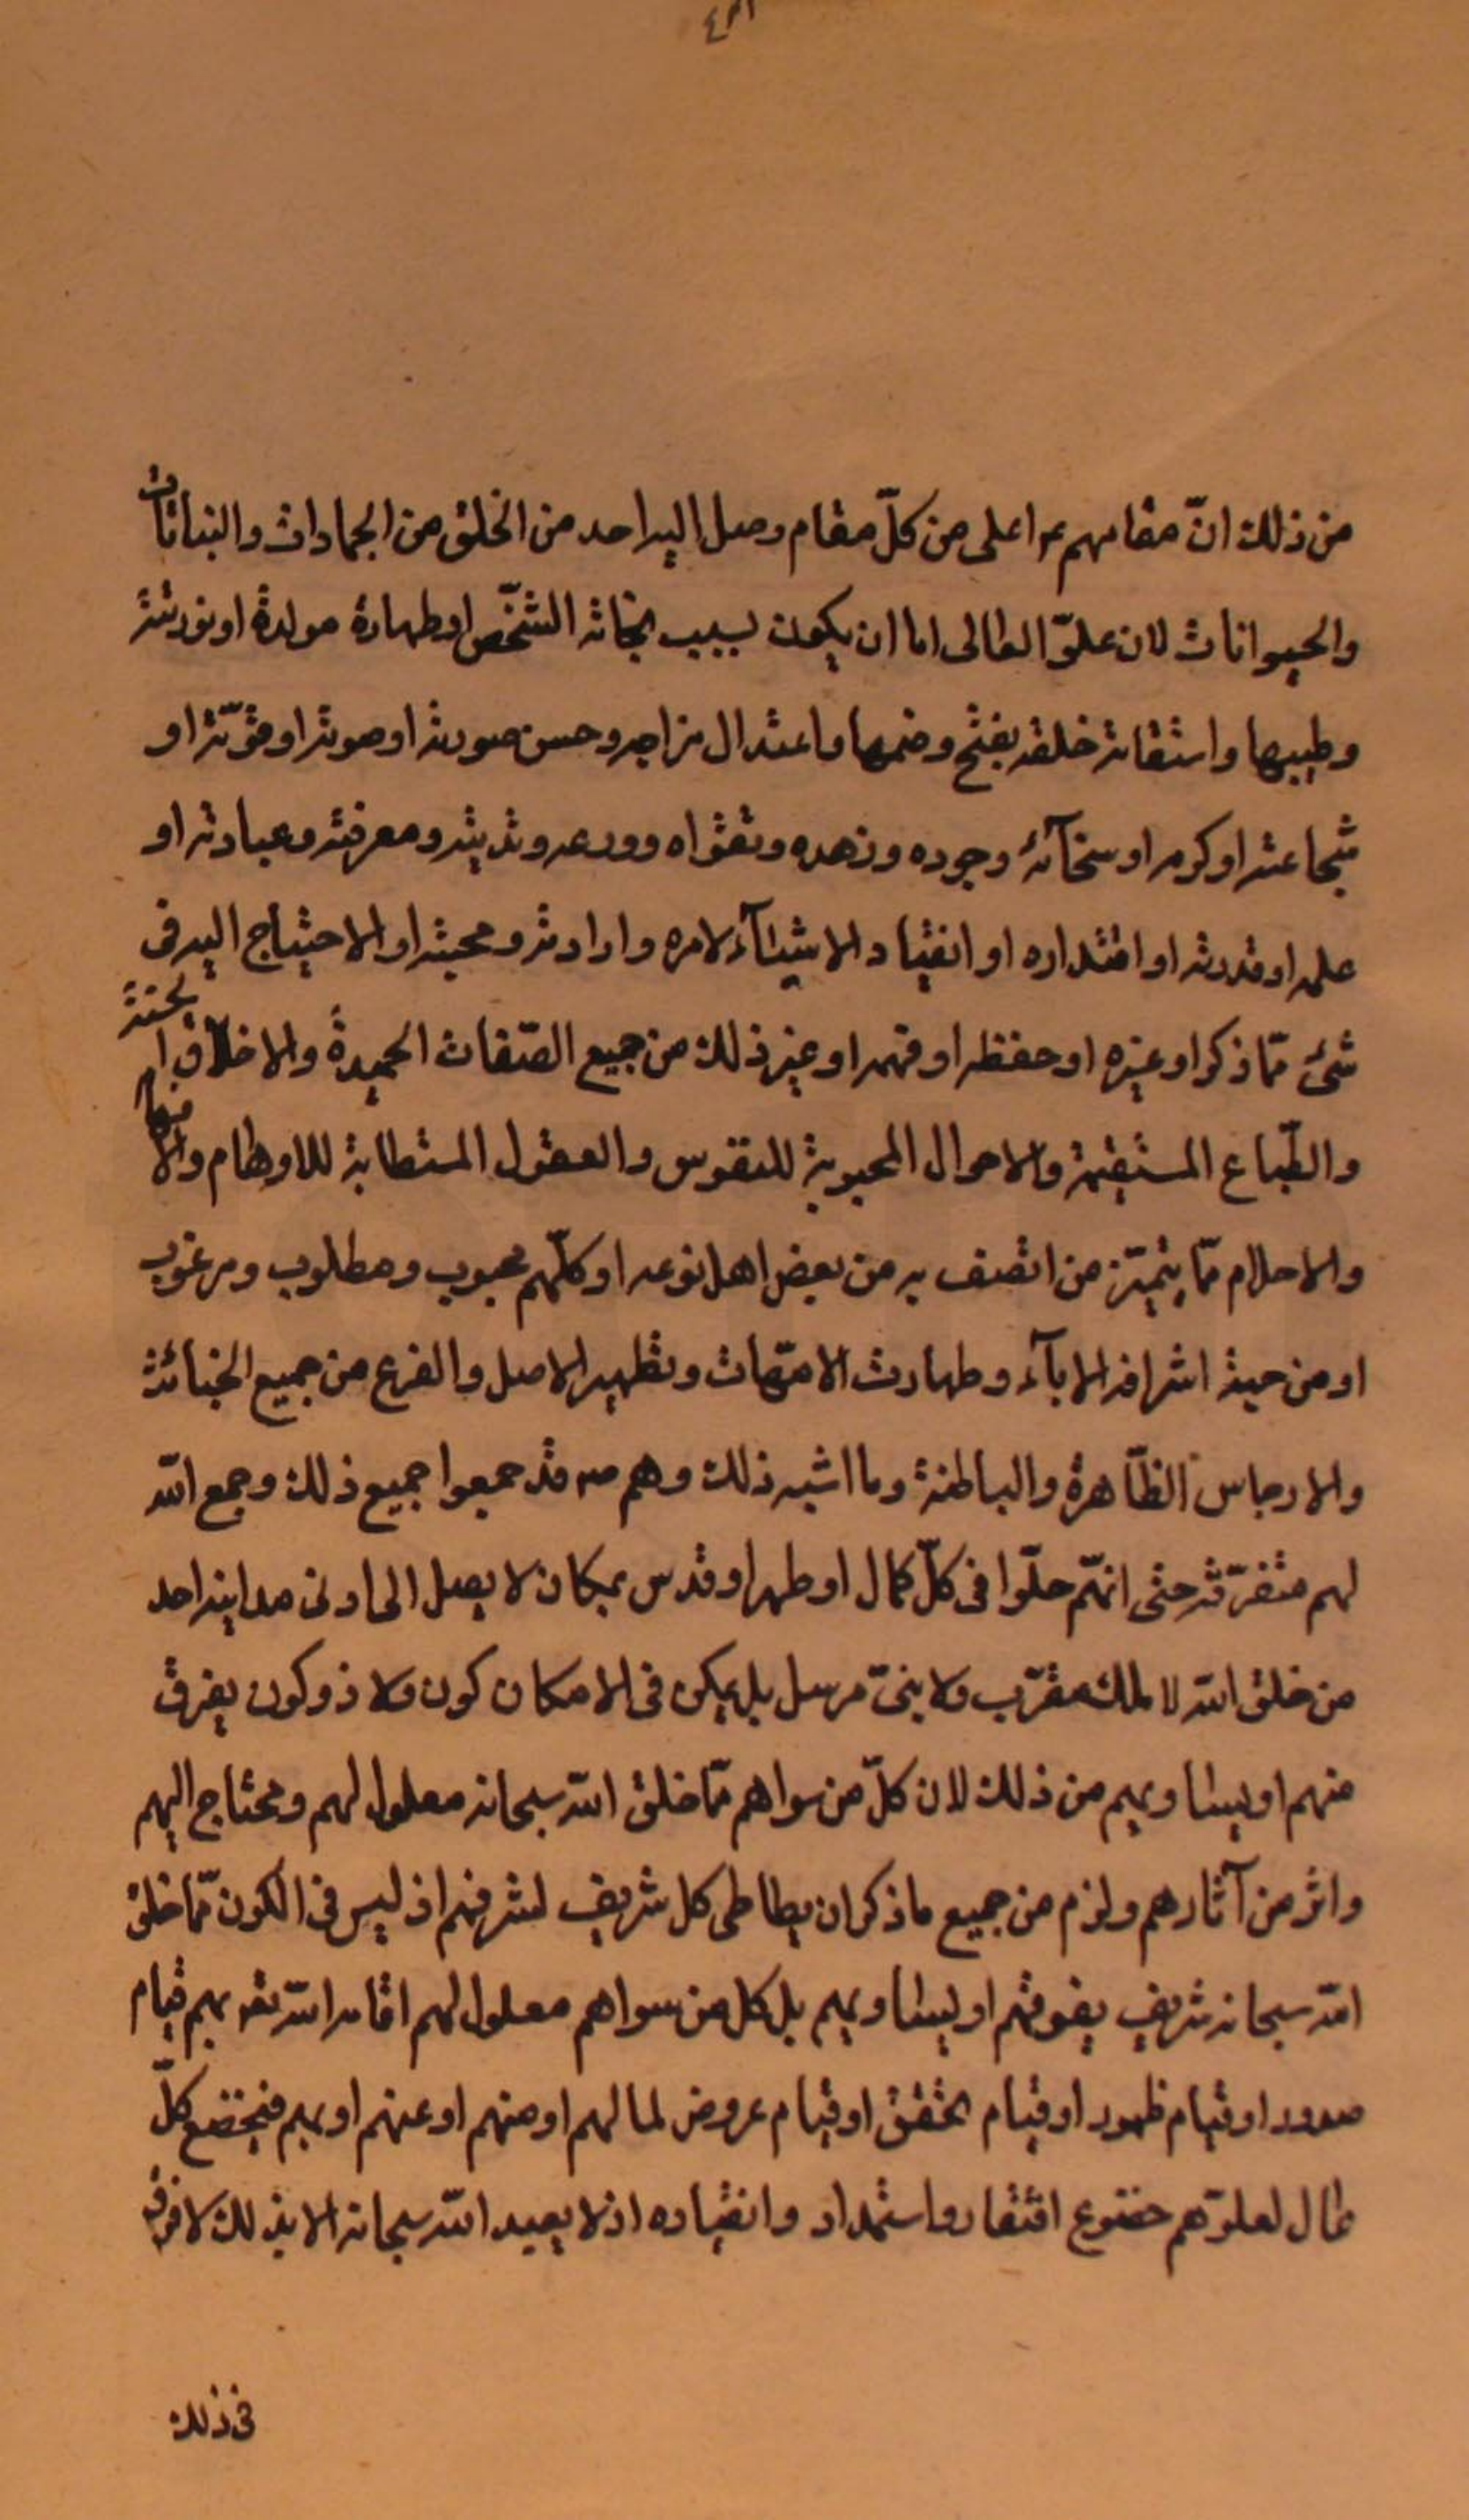 من ذلك انّ مقامهم ع اعلى من كلّ مقام وصل اليه احد من الخلق من الجمادات والنباتات
والحيوانات لان علوّ العالى اما ان يكون بسبب نجابة الشّخص او طهارة مولدة او تورثته
وطيبها واستقامة خلقه بفتح وضمها واعتدال مزاجه وحسن صورته او صوته او قوّته او
شجاعته او كرمه او سخآئه وجوده وزهده وتقواه وورعه وتدينه ومعرفته وعبادته او
علمه او قدرته او اقتداره او انقياد الاشيآء لامره وارادته ومحبته او الاحتياج اليه فى
شئ ممّا ذكر او غيره او حفظه او فهمه او غير ذلك من جميع الصّفات الحميدة والاخلاق الحسنة
والطّباع المستقيمة والاحوال المحبوبة للنفوس والعقول المستطابة للاوهام والافهام
والاحلام ممّا يتميّز من اتصف به من بعض اهل نوعه او كلّهم محبوب ومطلوب ومرغوب
او من حيث اشرافه الابآء وطهارت الامّهات وتطهير الاصل والفرع من جميع الخبائث
والارجاس الظّاهرة والباطنة وما اشبه ذلك وهم ص قد جمعوا جميع ذلك وجمع الله
لهم متفرّقه حتى انهّم حلّوا فى كلّ كمال او طهر او قدس بمكان لا يصل الى ادنى مدانيه احد
من خلق الله لا ملك مقرّب ولا نبىّ مرسل بل يمكن فى الامكان كون ولا ذو كون يفرق
منهم او يساويهم من ذلك لان كلّ من سواهم ممّا خلق الله سبحانه معلول لهم ومحتاج اليهم
واثر من آثارهم ولزم من جميع ما ذكر ان يطاطى كل شريف لشرفهم اذ ليس فى الكون ممّا خلق
الله سبحانه شريف يفوقهم او يساويهم بل كل من سواهم معلول لهم اقامه الله تع بهم قيام
صدور او قيام ظهور او قيام تحقق او قيام عروض لما لهم او منهم او عنهم او بهم فيخضع كلّ
عال لعلوّهم خضوع افتقار واستمداد وانقياده اذ لا يعبد الله سبحانه الا بذلك لا فرق
فى ذلك